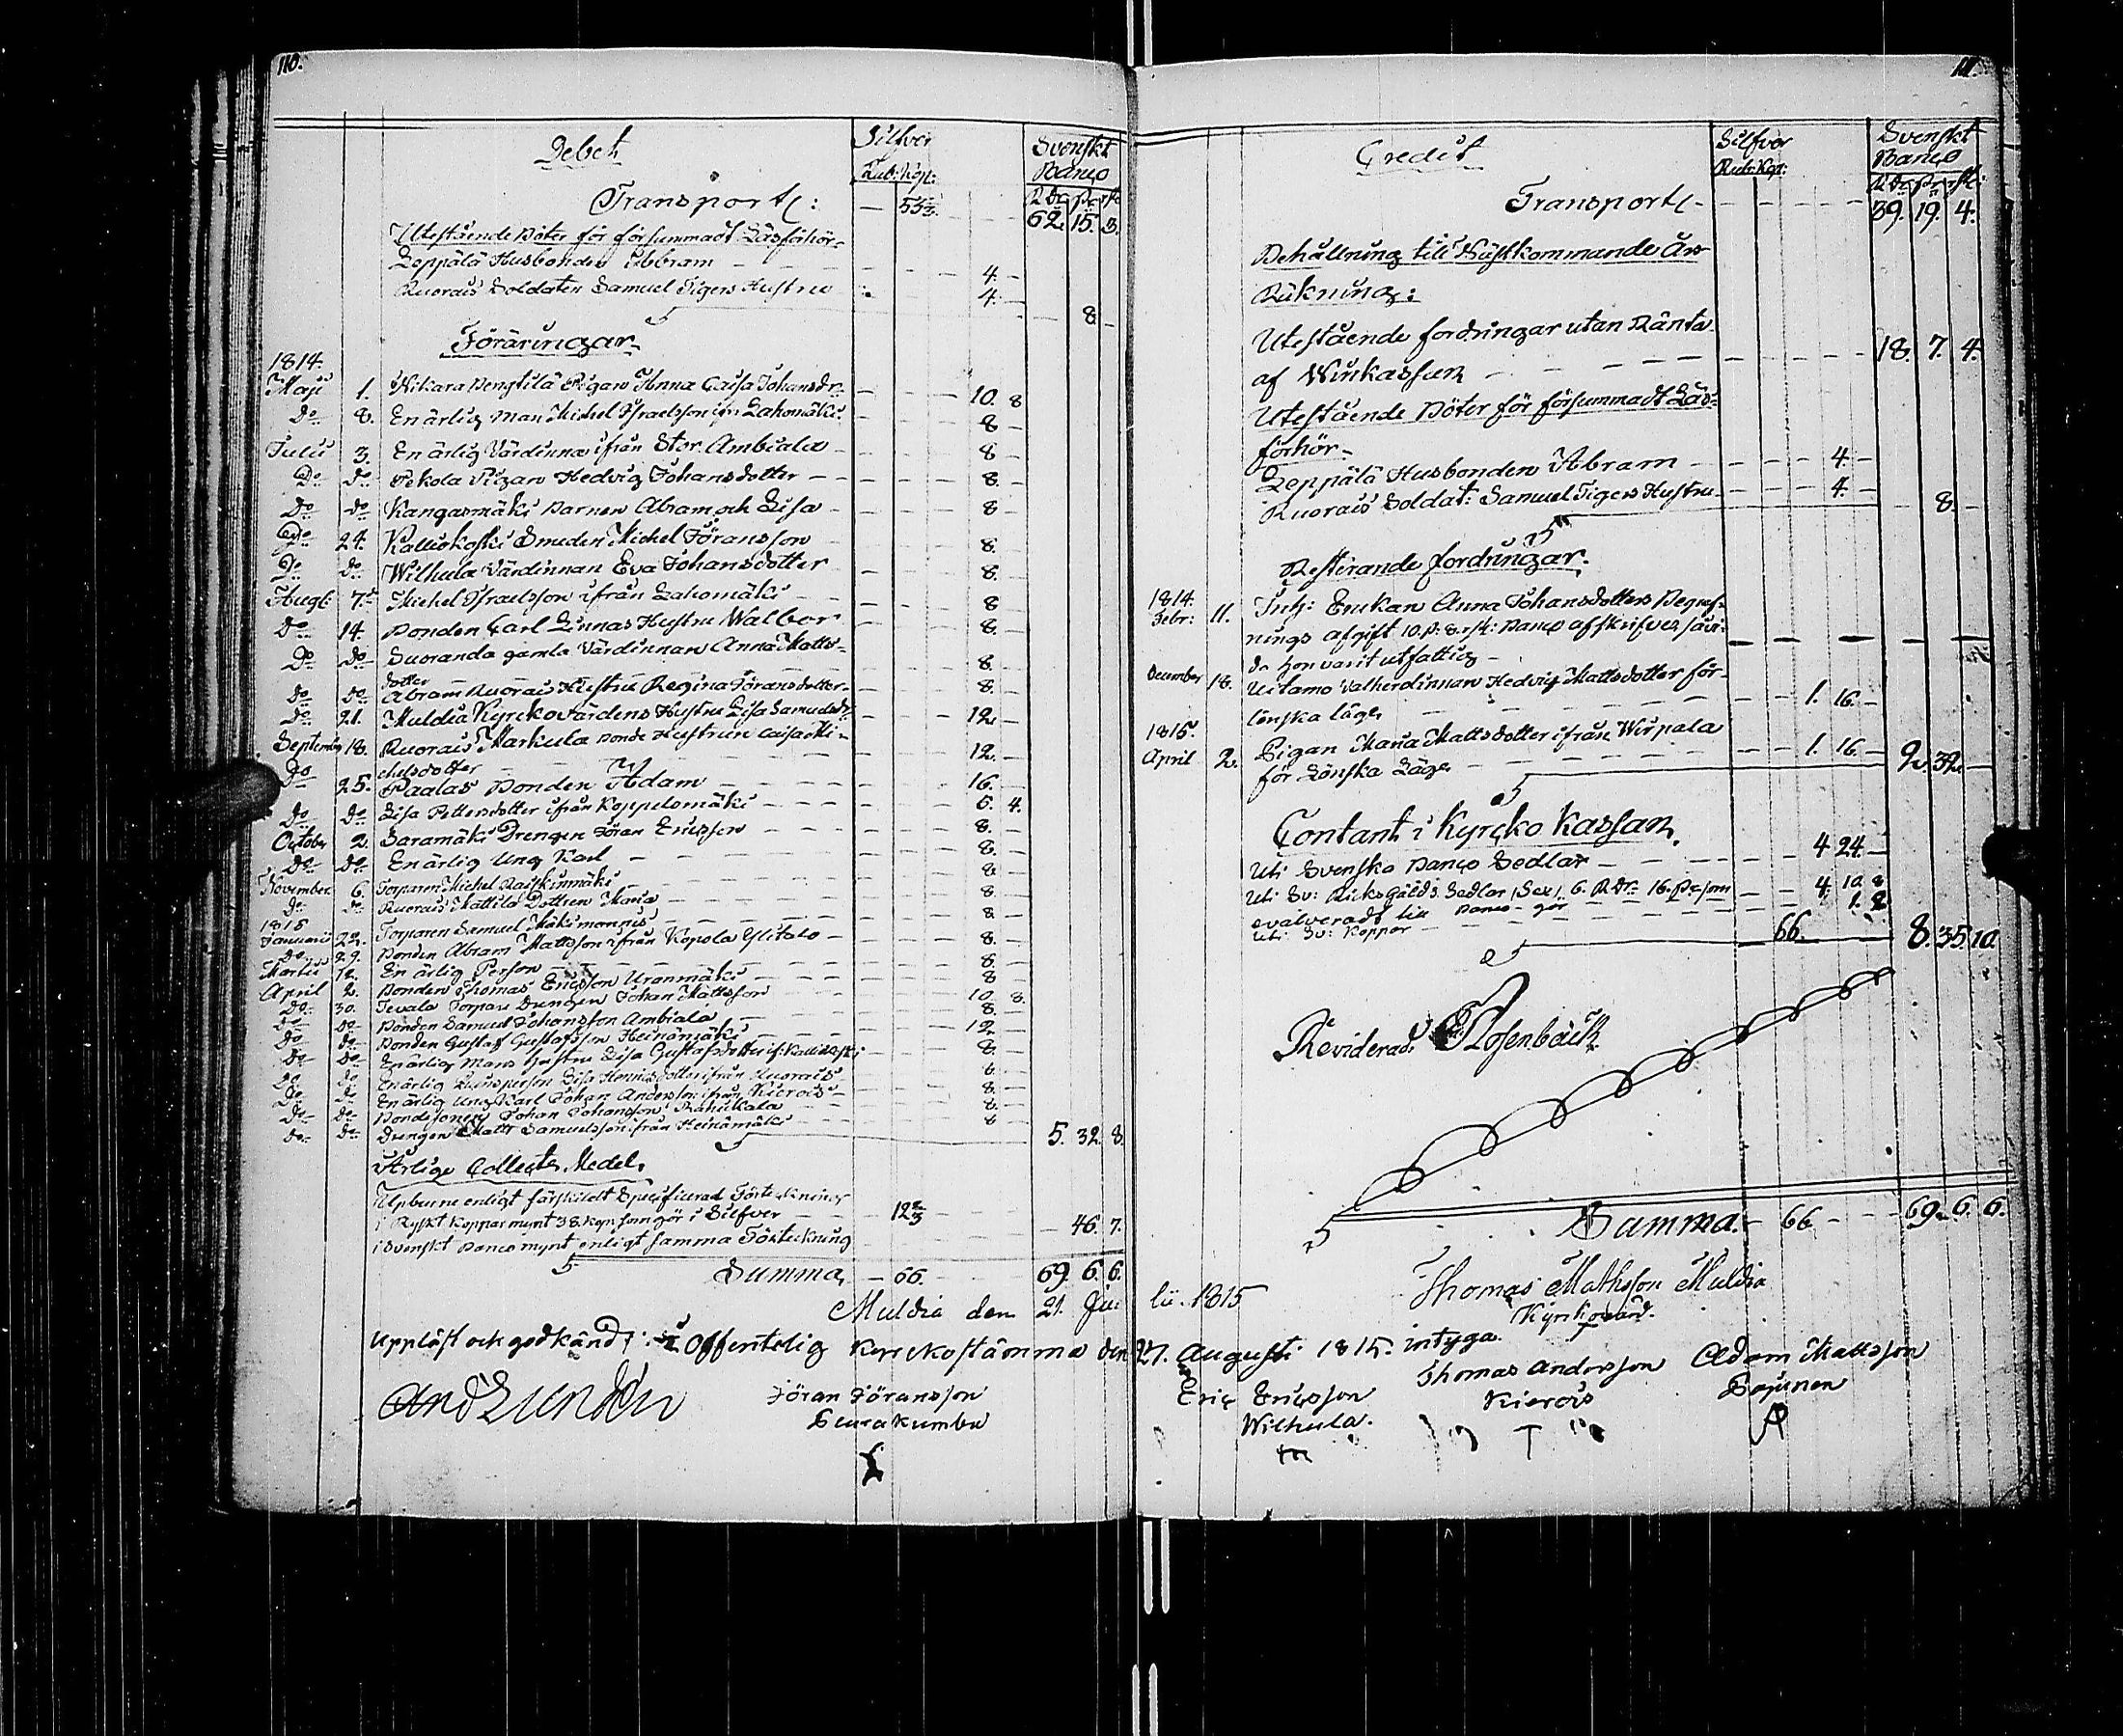 110.
Debet Silfver Svenskt
Rub: Kop: Banco
Transport: — 53 1/3. Rdr ß rst
62. 15. 3.
Utestående Böter för försummadt Läsförhör.
Leppälä Husbonden Abram — 4. —
Ruorais Soldaten Samuel Tigers Hustru — 4. —
— 8. —
Föräringar.
1814.
Maji 1. Nikara Pengtilä Pigan Anna Caisa Johansdr. — 10. 8
Do 8. En ärlig man Michel Israelsson ifr: Lahomäki — 8 —
Julii 3. En ärlig Värdinna ifrån Stor Ambiala — 8 —
Do Do Pekola Pigan Hedvig Johansdotter — 8. —
Do Do Kangasmäki Barnen Abram och Lisa — 8 —
Do 24. Kalliokoski Smeden Michel Jöransson — 8. —
Do Do Wilhula Värdinnan Eva Johansdotter — 8. —
Augti 7. Michel Israelsson ifrån Lahomäki — 8 —
Do 14. Bonden Carl Linnas Hustru Walbor — 8. —
Do Do Suoranda gamla Värdinnan Anna Matts-
dotter — 8. —
Do Do Abram Ruorais Hustru Regina Jöransdotter — 8. —
Do 21. Muldia Kyrckovärdens Hustru Lisa Samuelsdr. — 12. —
September 18. Ruorais Markula Bonde Hustrun Caisa Mi-
chelsdotter — 12. —
Do 25. Paalas Bonden Adam — 16. —
Do Do Lisa Pettersdotter ifrån Koppelomäki — 5. 4.
October 2. Saramäki Drengen Jöran Ericsson — 8. —
Do Do En ärlig Ung Karl — 8. —
November 6. Torparen Michel Raiskinmäki — 8 —
Do Do Ruorais Mattila Dottren Maria — 8 —
1815
Januarii 22. Torparen Samuel Mäkimannis — 8 —
Do 29. Bonden Abram Mattsson ifrån Kopola Ylitalo — 8. —
Martii 12. En ärlig Person — 8. —
April 2. Bonden Thomas Ericsson Uronmäki — 8 —
Do 30. Tevala Torpare Drengen Johan Mattsson — 10. 8.
Do Do Bonden Samuel Johansson Ambiala — 8. —
Do Do Bonden Gustaf Gustafsson Heinämäki — 12. —
Do Do En ärlig Mans Hustru Lisa Gustafsdotter if: Kalliokoski — 8. —
Do Do En ärlig Qvinsperson Lisa Henricsdotter ifrån Ruorais — 6 —
Do Do En ärlig Ung Karl Johan Andersson ifrån Kierois — 8 —
Do Do Bondesonen Johan Johansson Rahikkala — 8. —
Do Do Drengen Matts Samuelsson ifrån Heinämäki — 8 —
5. 32. 8.
Årlige Collecte Medel.
Upburne enligt särskildt Specificerad Förteckning
i Ryskt Koppar mynt 38. kop: som gör i Silfver — 12 2/3
i Svenskt Banco mynt enligt samma Förteckning — 46. 7.
Summa — 66. — 69. 6. 6.
Muldia den 21. Ju-
Uppläst och godkändt: i Offentelig Kyrckostämma den
And Lundén Jöran Jöransson
Suurakumbu
111.
Credit Silfver Svenskt
Rub: Kop: Banco
Rdr ß rst:
Transport — 39. 19. 4.
Behållning till Nästkommande Års
Räkning:
Utestående fordringar utan Ränta
af Winkassan — 18. 7. 4.
Utestående Böter för försummadt Läs-
förhör —
Leppälä Husbonden Abram — 4. —
Ruorais Soldat: Samuel Tigers Hustru — 4. — 8. —
Resterande fordringar.
1814.
Febr: 11. Inh: Enckan Anna Johansdotters Begraf-
nings afgift 10. ß: 8. rst: Banco afskrifves såsom
då hon varit utfattig —
December 18. Uitamo Vallherdinnan Hedvig Mattsdotter för
lönska läge — 1. 16. —
1815.
April 2. Pigan Maria Mattsdotter ifrån Wirpala
för Lönska Läge — 1. 16 — 2. 32. —
Contant i Kyrcko Kassan.
Uti Svenska Banco Sedlar — 4 24. —
Uti Sv: Riksgälds Sedlar (Sex) 6. Rdr 16. ß: som
evalveradt till Banco gör — 4. 10. 8
Uti Sv: Koppar — 1. 2
66. 8. 35. 10.
Reviderad. Rosenbäck
Summa. — 66. — 69. 6. 6.
lii. 1815 Thomas Mathsson Muldia
Kyrkovärd.
27. Augusti 1815. intyga
Eric Ericsson Thomas Andersson Adam Mattsson
Wilhula. Kierois Pajunen